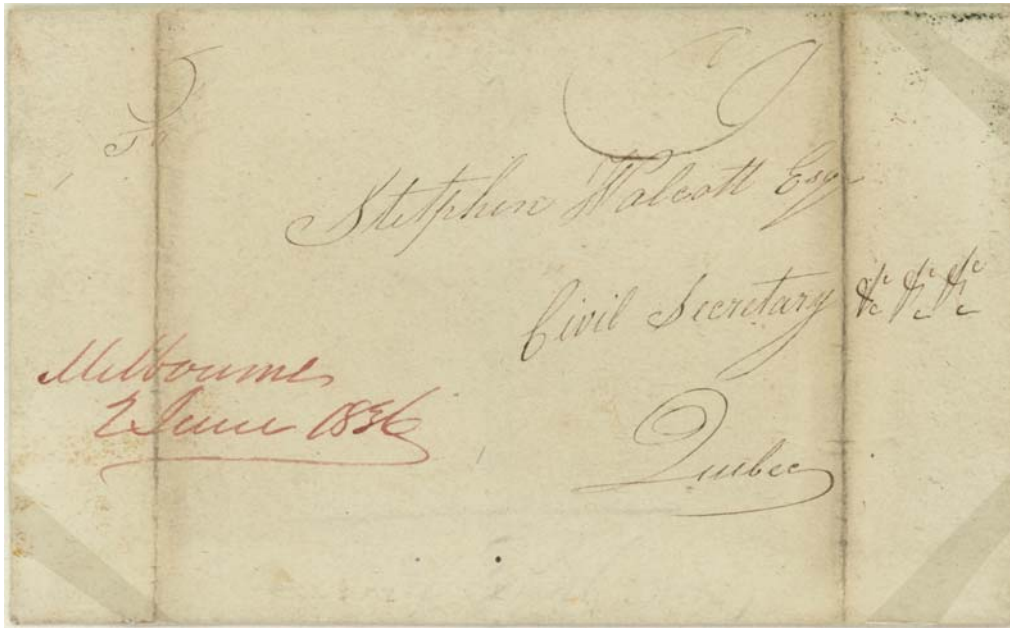 Stetphen Walcott Esqr
Civil Secretary &c &c &c
Quebec
Melbourne
2 June 1836